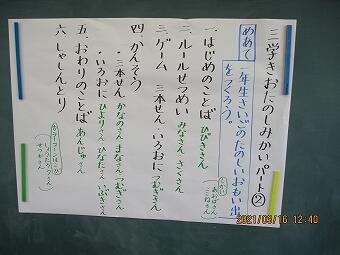 三学きおたのしみかいパート②
めあて 一年生さいごのたのしいおもい出
をつくろう。
一、はじめのことば ひびきさん
二、ルールせつめい みなさん、さくさん
三、ゲーム 三本せん・いろおに つむぎさん
四、かんそう
・三本せん かなのさん まなさん つむぎさん
・いろおに ひよりさん ひなたさん いぶきさん
五、おわりのことば あんじゅさん
六、しゃしんとり
2021/03/16 12:40